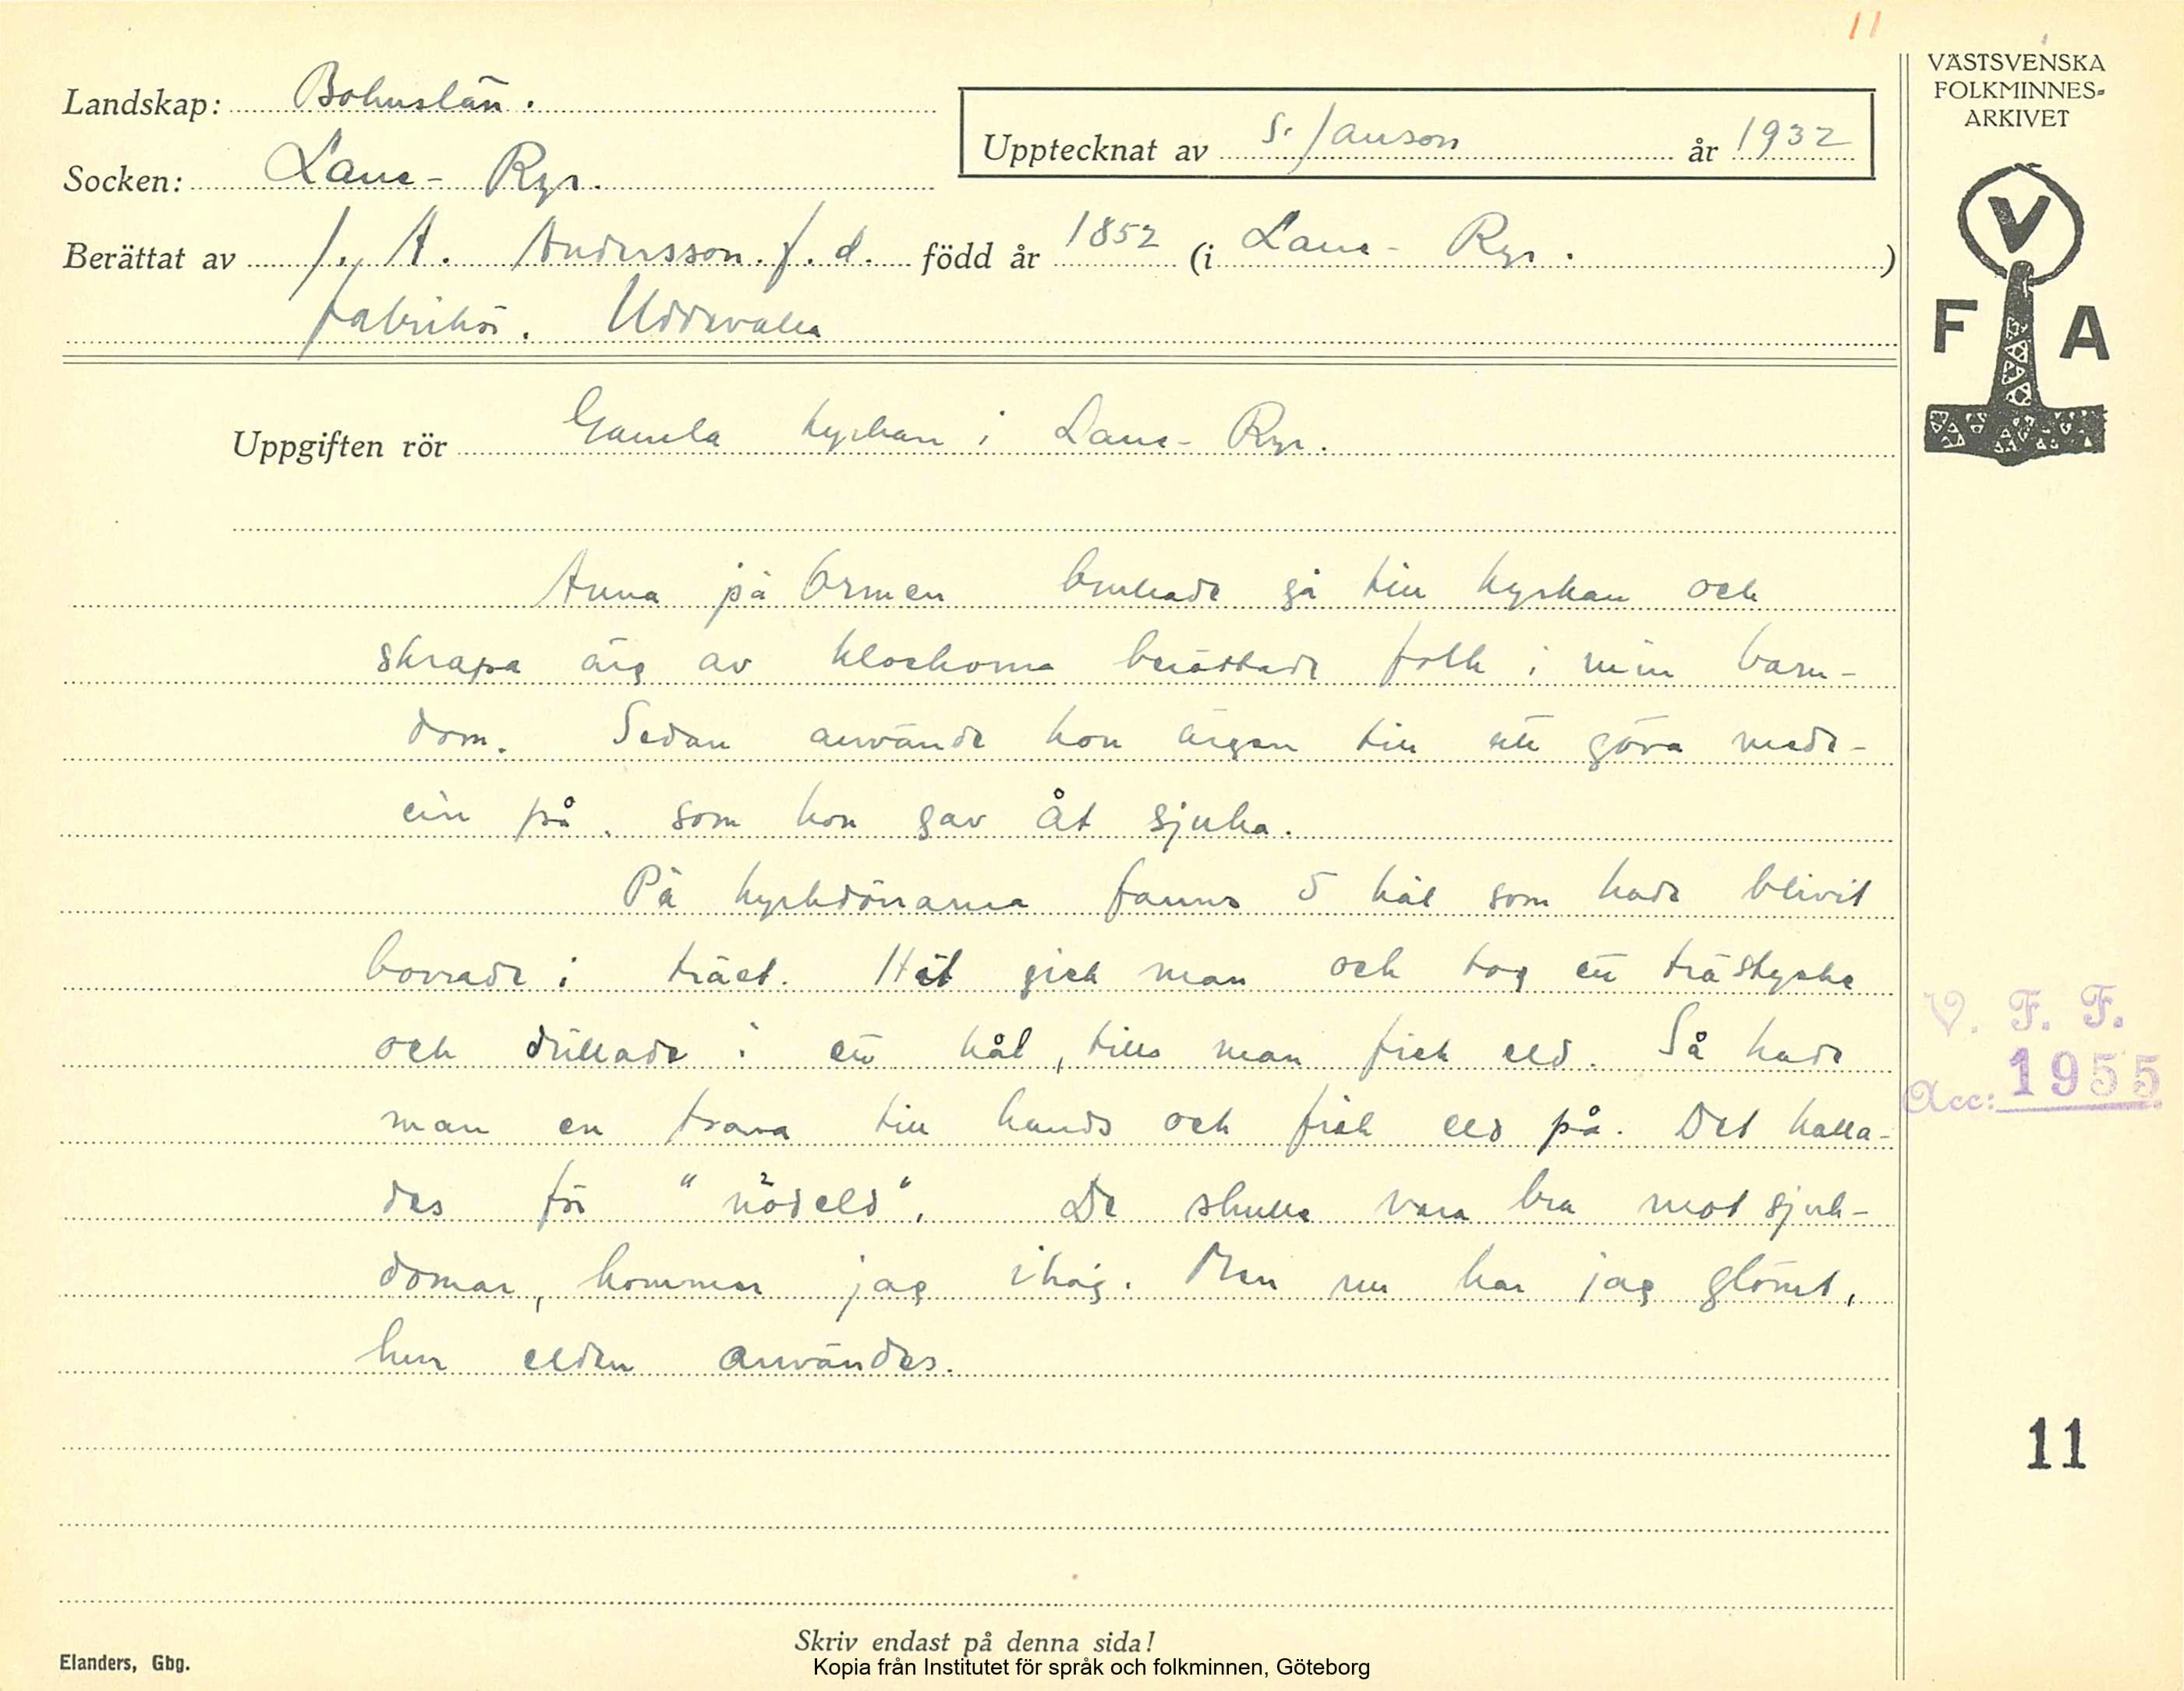 11
VÄSTSVENSKA
FOLKMINNES-
ARKIVET
Landskap: Bohuslän.
Upptecknat av S. Janson år 1932
Socken: Lane- Ryr.
Berättat av J. A. Andersson. f. d. född år 1852 (i Lane- Ryr. )
fabrikör. Uddevalla
V
F A
Uppgiften rör Gamla kyrkan i Lane- Ryr.
Anna på Ormen brukade gå till kyrkan och
skrapa ärg av klockorna berättade folk i min barn-
dom. Sedan använde hon ärgen till att göra medi-
cin på. som hon gav åt sjuka.
På kyrkdörrarna fanns 5 hål som hade blivit
borrade i träet. Hit gick man och tog ett trästycke
och drillade i ett hål, tills man fick eld. Så hade
man en trasa till hands och fick eld på. Det kalla-
des för "nödeld". De skulle vara bra mot sjuk-
domar, kommer jag ihåg. Men nu har jag glömt,
hur elden användes.
V. F. F.
Acc: 1955
11
Skriv endast på denna sida!
Elanders, Gbg.
Kopia från Institutet för språk och folkminnen, Göteborg